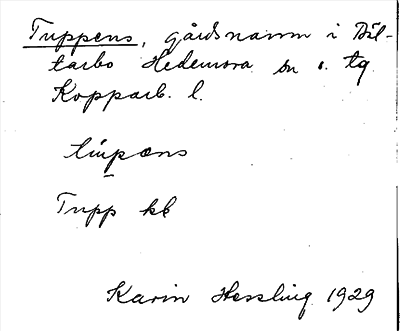 Tuppens, gårdsnamn i Bäl-
tarbo Hedemora sn o. tg
Kopparb. l.
tupens
Tupp kb
Karin Hessling 1929